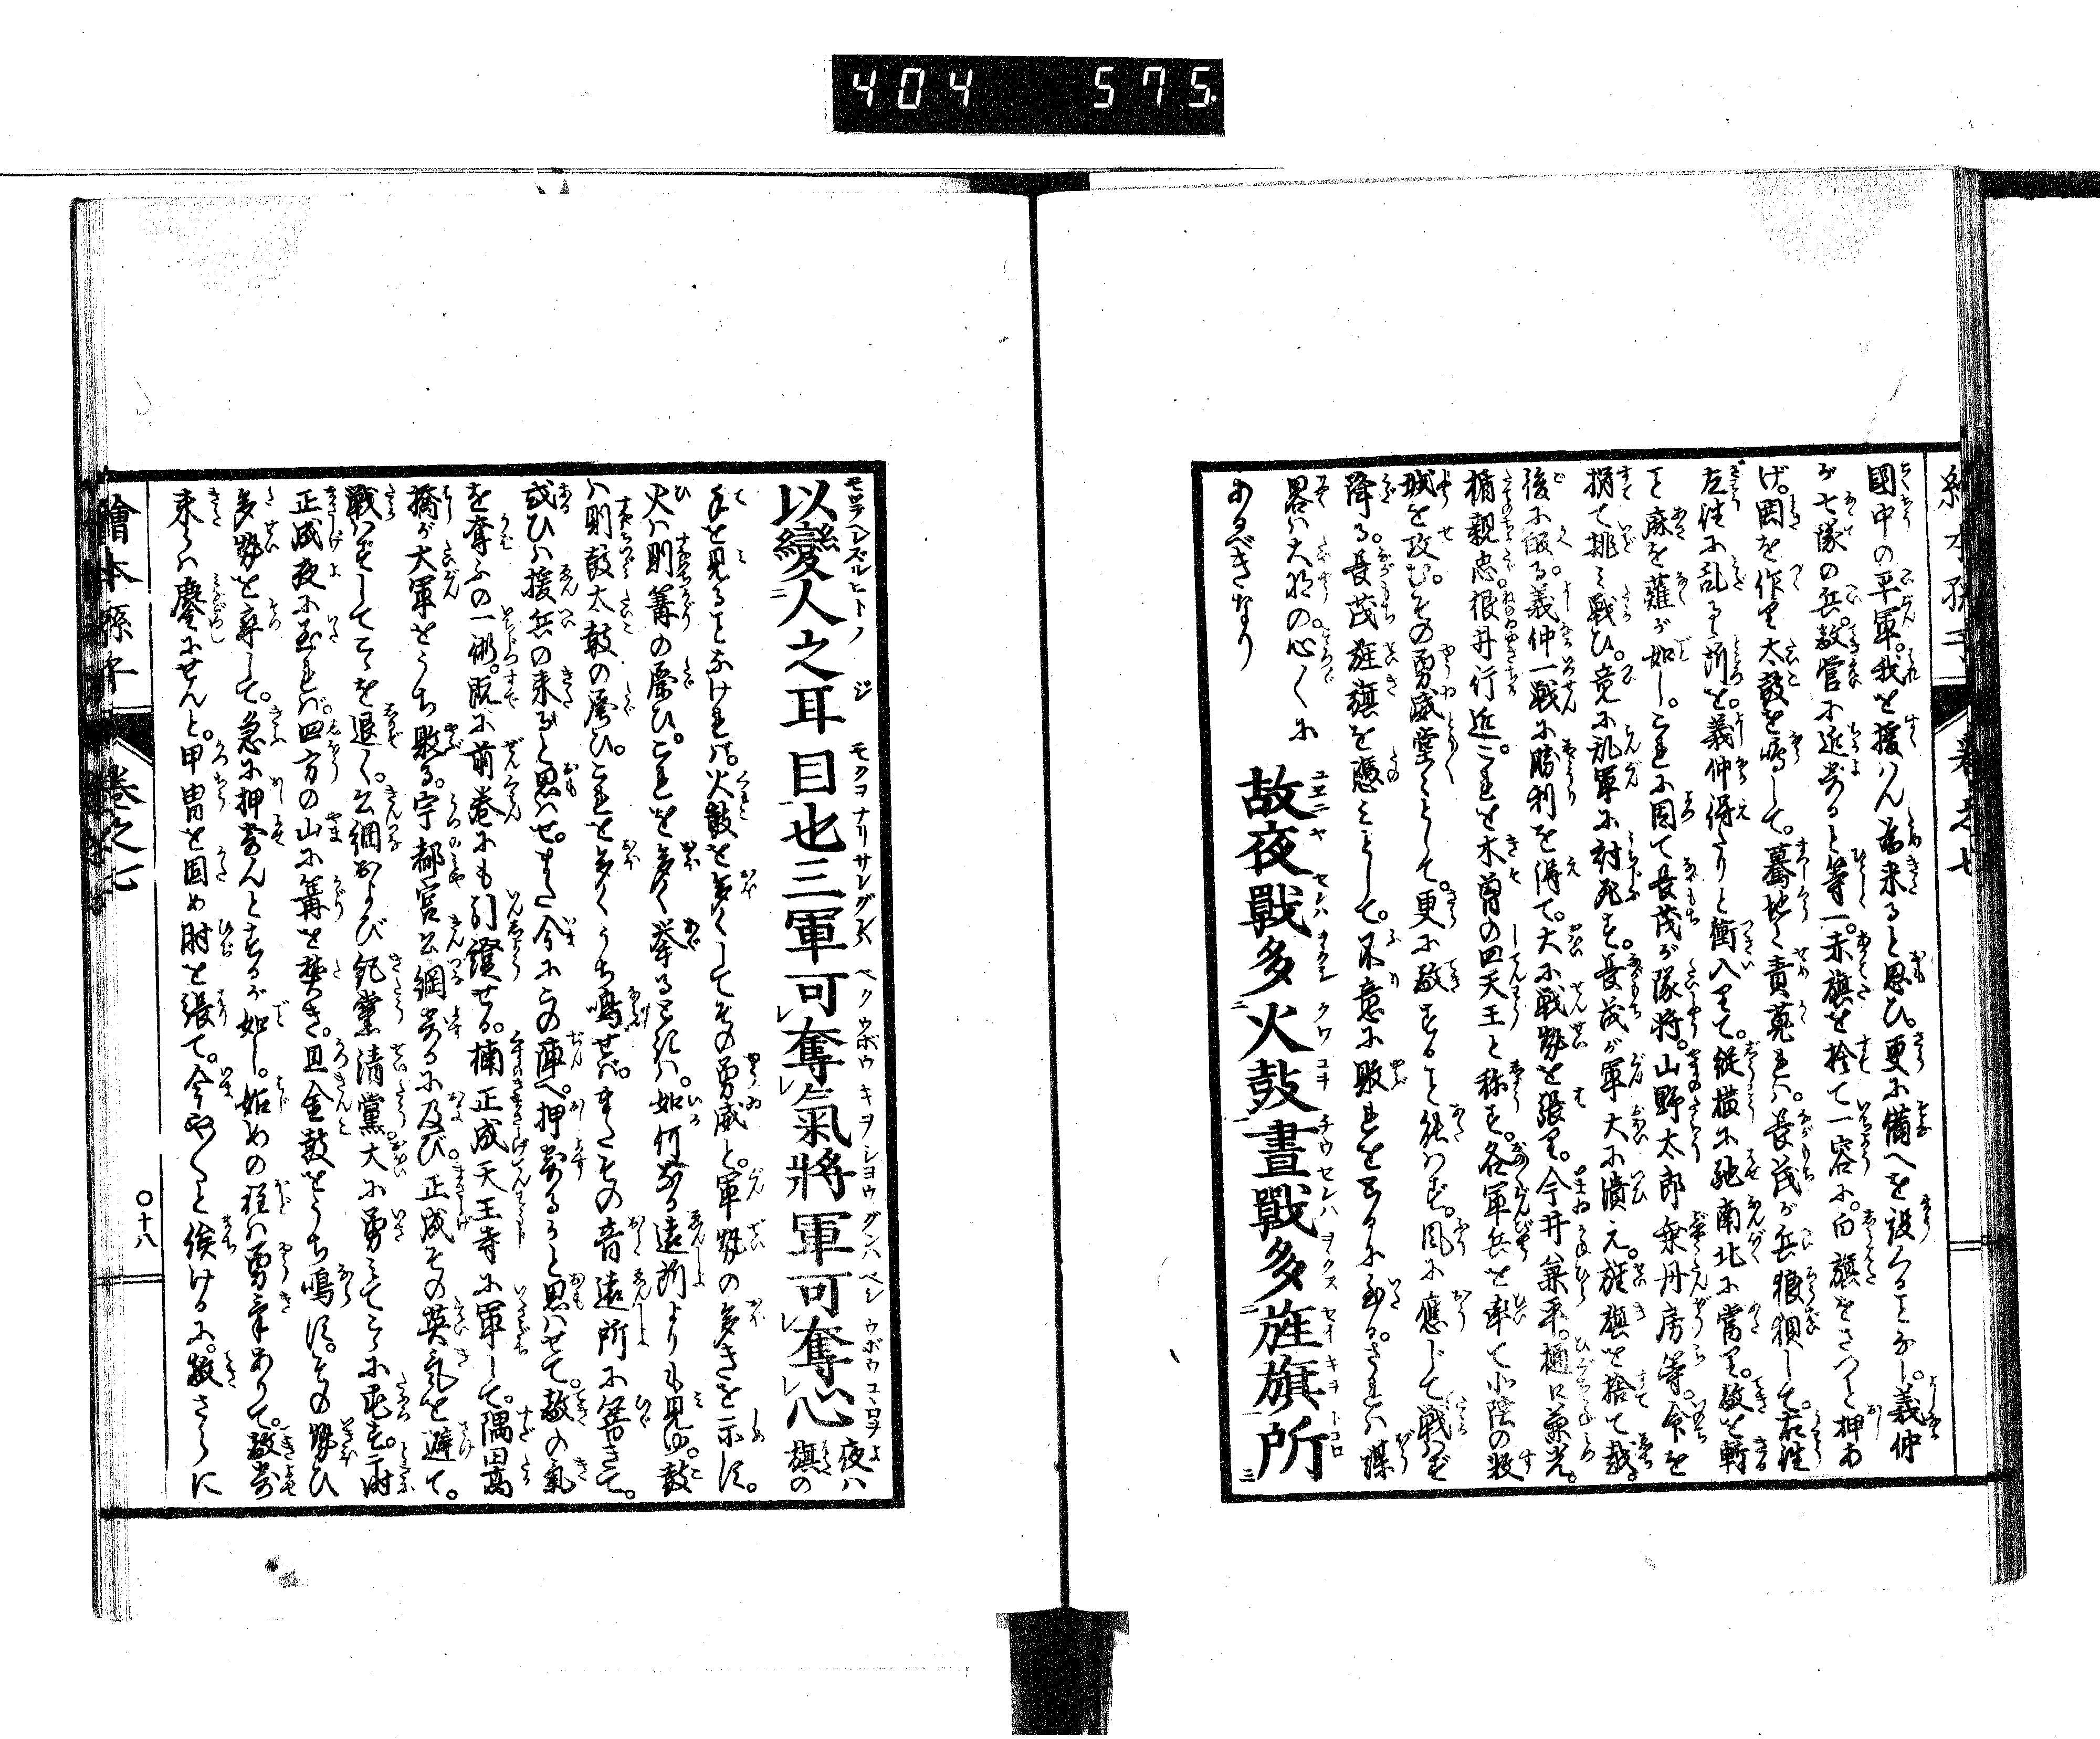 404 575
繪本孫子 巻之七
國中の平軍。我を援はん為来ると思ひ。更に備へを設くることなし。義仲
が七隊の兵。敵営に近寄ると等一。赤旗を捨て一容に。白旗をさつと押あ
げ。閧を作り太鼓を鳴して。驀地く責蒐れバ。長茂が兵狼狽して。右往
左往に乱るゝ所を。義仲得たりと衝入りて。縦横に馳南北に當り。敵を斬
こと麻を薙が如し。これに因て長茂が隊将。山野太郎乗丹房等。命を
捐て挑ミ戦ひ。竟に乱軍に討死す。長茂が軍大に潰え。旌旗を捨て越
後に皈る。義仲一戦に勝利を得て。大に戦勢を張り。今井兼平。樋口兼光。
楯親忠。根井行近。これを木曽の四天王と称す。各軍兵を率て小陰の
城を攻む。その勇威堂〻として。更に敵すること能ハず。風に應じて戦ハず
降る。長茂旌旗を憑ミとして。不意に敗をとるに至る。されバ謀
畧ハ大将の心〱に
あるべきなり
故夜戰多火鼓晝戰多旌旗所
以變人之耳目也三軍可奪氣將軍可奪心
夜ハ
旗の
手を見ることなけれバ。火鼓を多くしてその勇威と。軍勢の多きを示す。
火ハ則篝の属ひ。これを多く挙るときハ。如何なる遠所よりも見ゆ。鼓
ハ則鼓太鼓の属ひ。これを多くうち鳴せバ。またその音遠所に響きて。
或ひハ援兵の来ると思ハせ。また今にこの陣へ。押寄るかと思ハせて。敵の氣
を奪ふの一術。既に前巻にも引證せる。楠正成天王寺に軍して。隅田高
橋が大軍をうち敗る。宇都宮公綱寄るに及び。正成その英氣を避て。
戦ハずしてこゝを退く。公綱および紀黨清黨。大に勇ミてこゝに屯す。爾
正成夜に至れバ。四方の山に篝を焚き。且金鼓をうち鳴す。その勢ひ
多勢を率して。急に押寄んとするが如し。始めの程ハ勇氣ありて。敵寄
来らバ鏖にせんと。甲冑を固め肘を張て。今や〱と俟けるに。敵さらに
繪本孫子 巻之七 〇十八